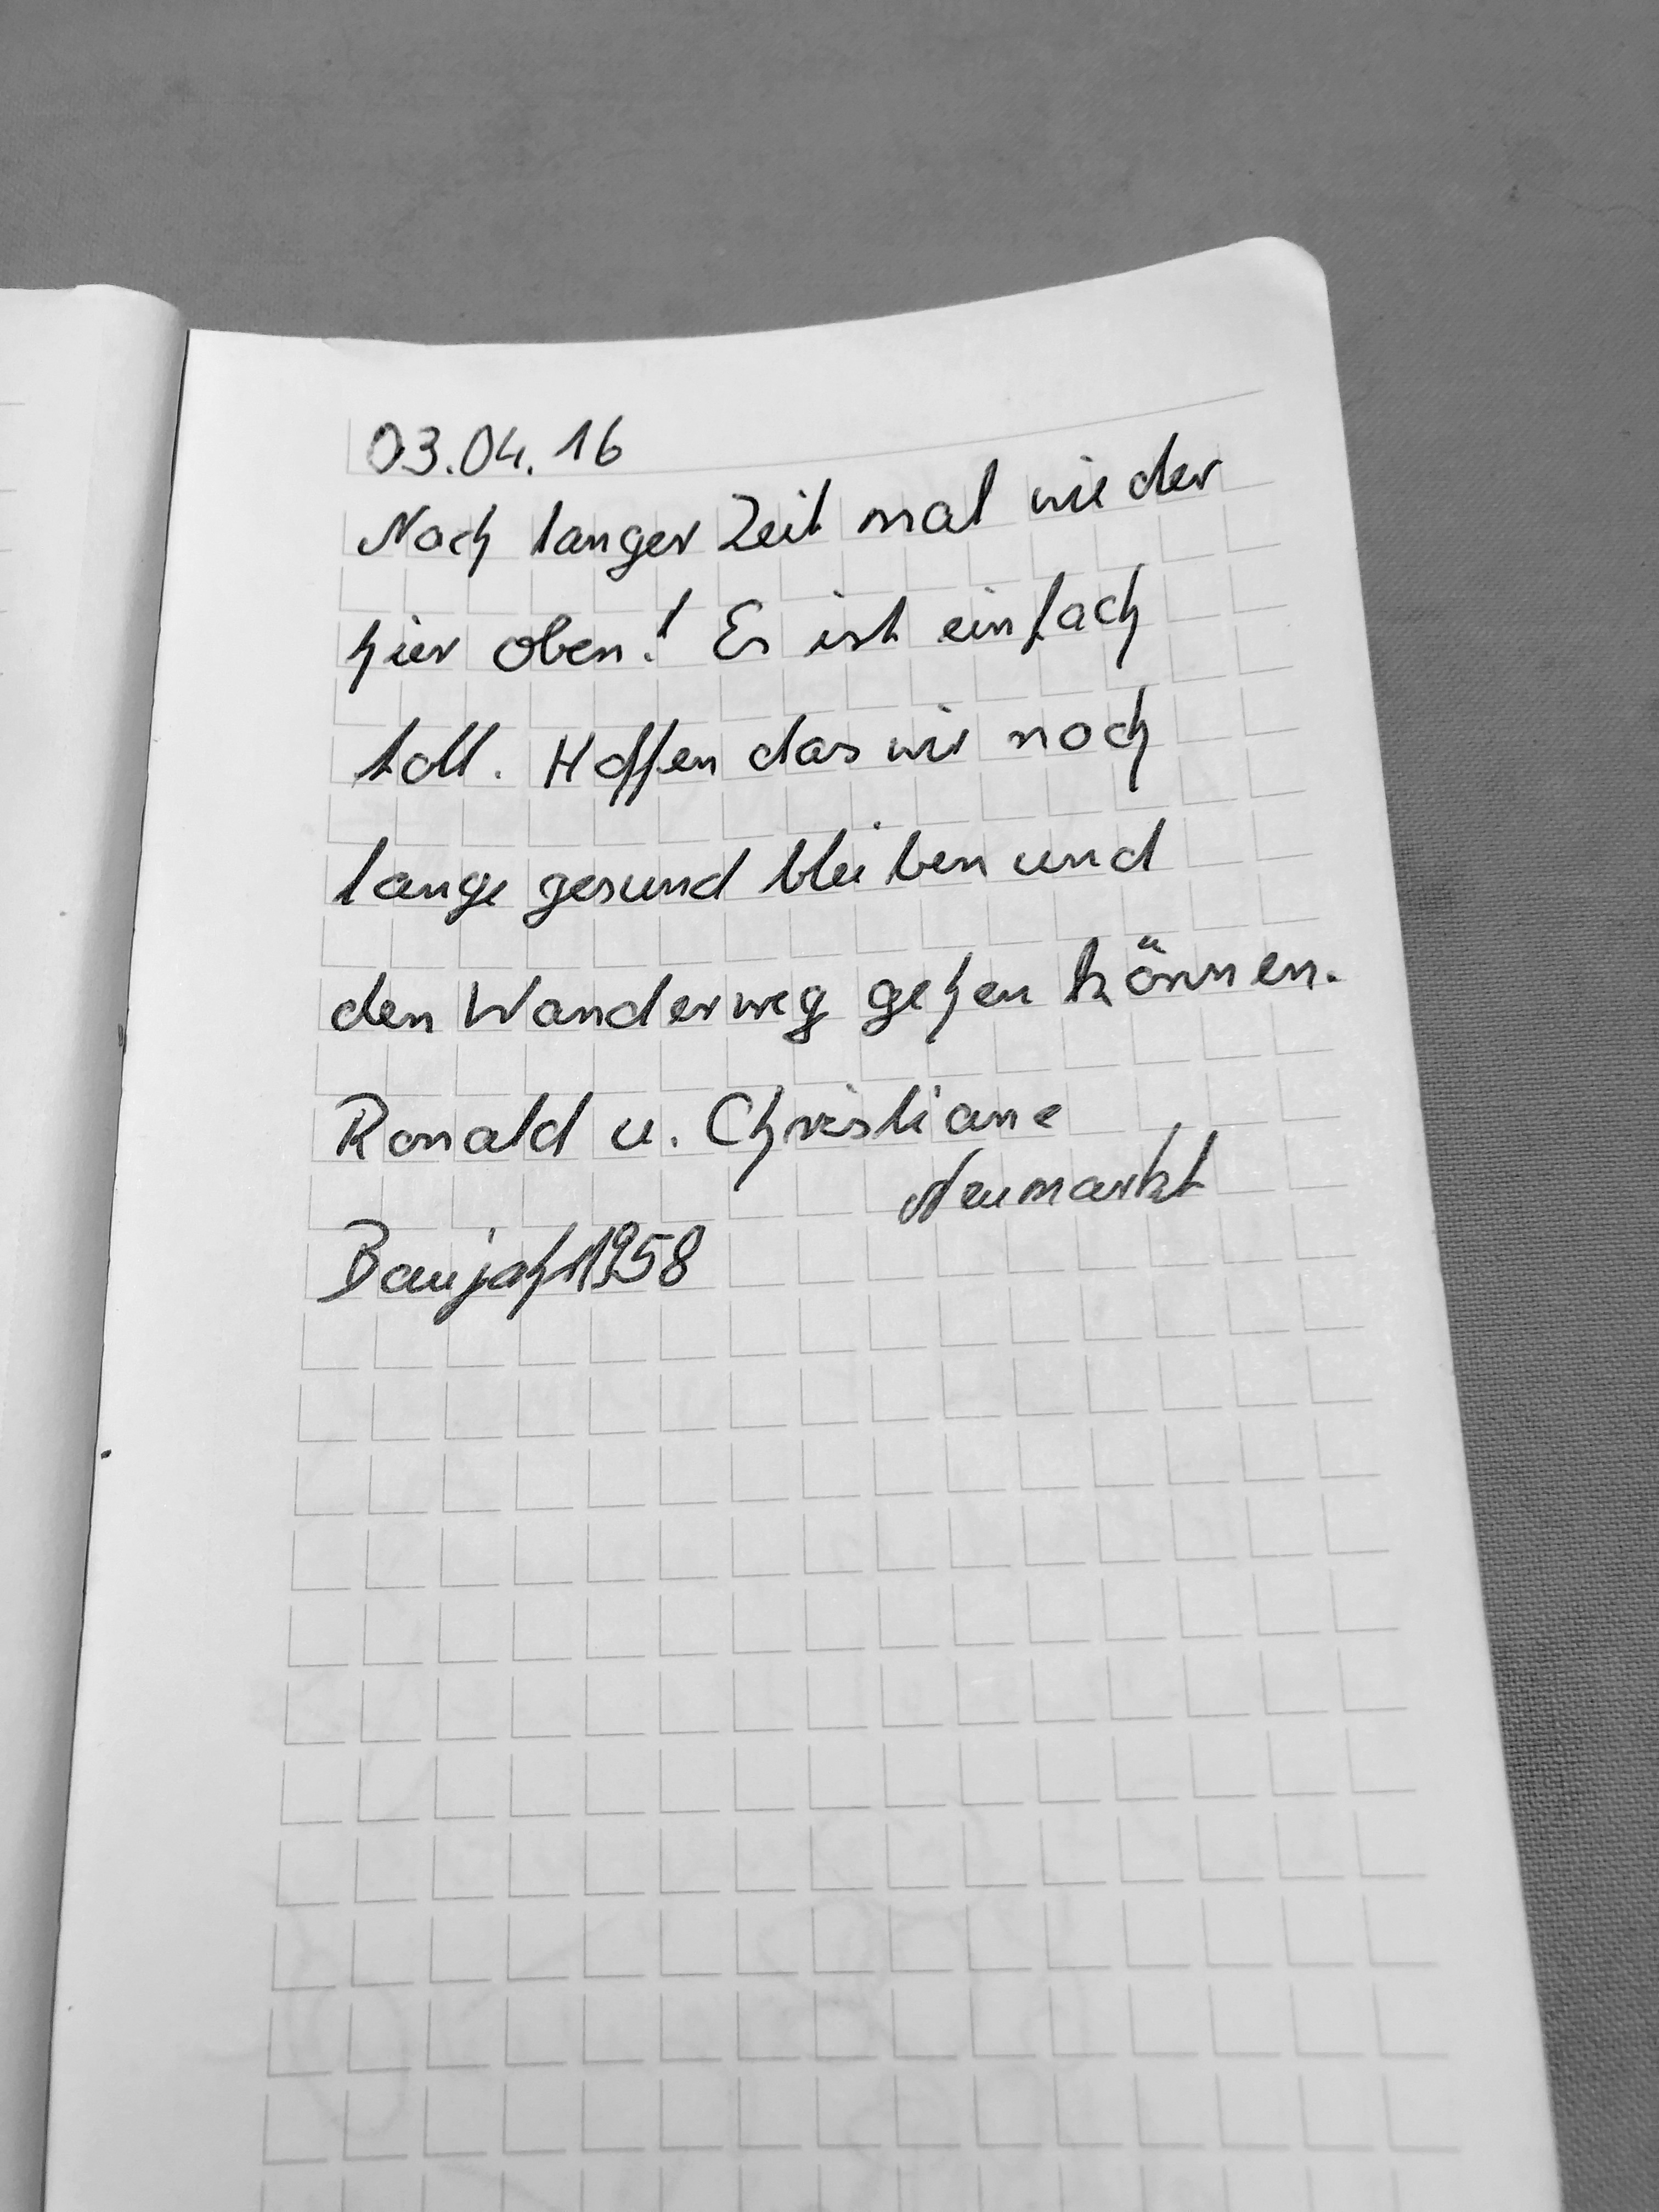 03.04.16
Nach langer Zeit mal wieder
hier oben! Es ist einfach
toll. Hoffen das wir noch
lange gesund bleiben und
den Wanderweg gehen können.
Ronald u. Christiane
Neumarkt
Baujahr 1958